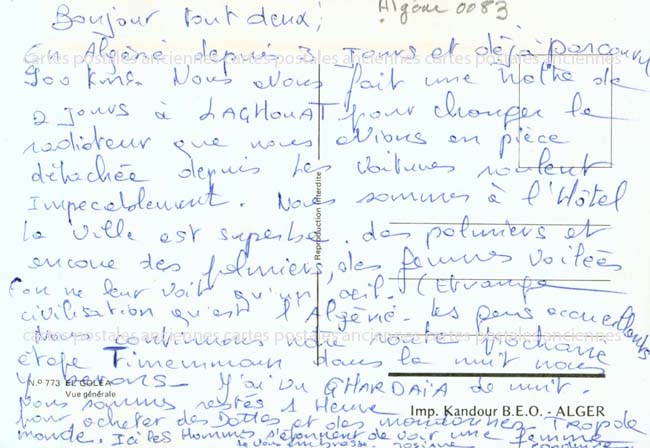 Algérie 0083
Bonjour tout deux,
En Algérie depuis 3 jours et déjà parcouru
900 kms. Nous avons fait une halte de
2 jours à LAGHOUAT pour changer le
radiateur que nous avions en pièce
détachée depuis les voitures roulent
Impecablement. Nous sommes à l'Hôtel
la ville est superbe. des palmiers et
encore des palmiers, des femmes voilées
(on ne leur voit qu'un œil. (Etrange
civilisation qu'est l'Algérie. les gens accueillants
Nous continuons notre prochaine
étape Timimoun dans la nuit nous
y serons - J'ai vu GHARDAÏA de nuit.
nous sommes restés 1 Heure
pour acheter des Dattes et des mandarines. Trop de
monde. Ici les Hommes s'étonnent de voir une femme
cartes postales anciennes cartes postales anciennes cartes postales anciennes
cartes postales anciennes cartes postales anciennes cartes postales anciennes
Reproduction interdite
N.º 773 EL GOLEA
Vue générale
Imp. Kandour B.E.O. - ALGER